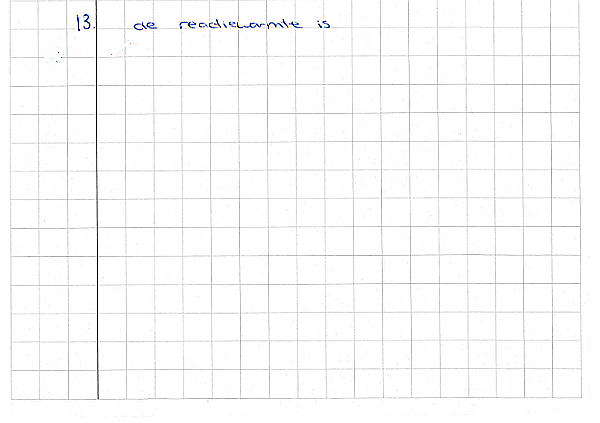 13. de reactiewarmte is